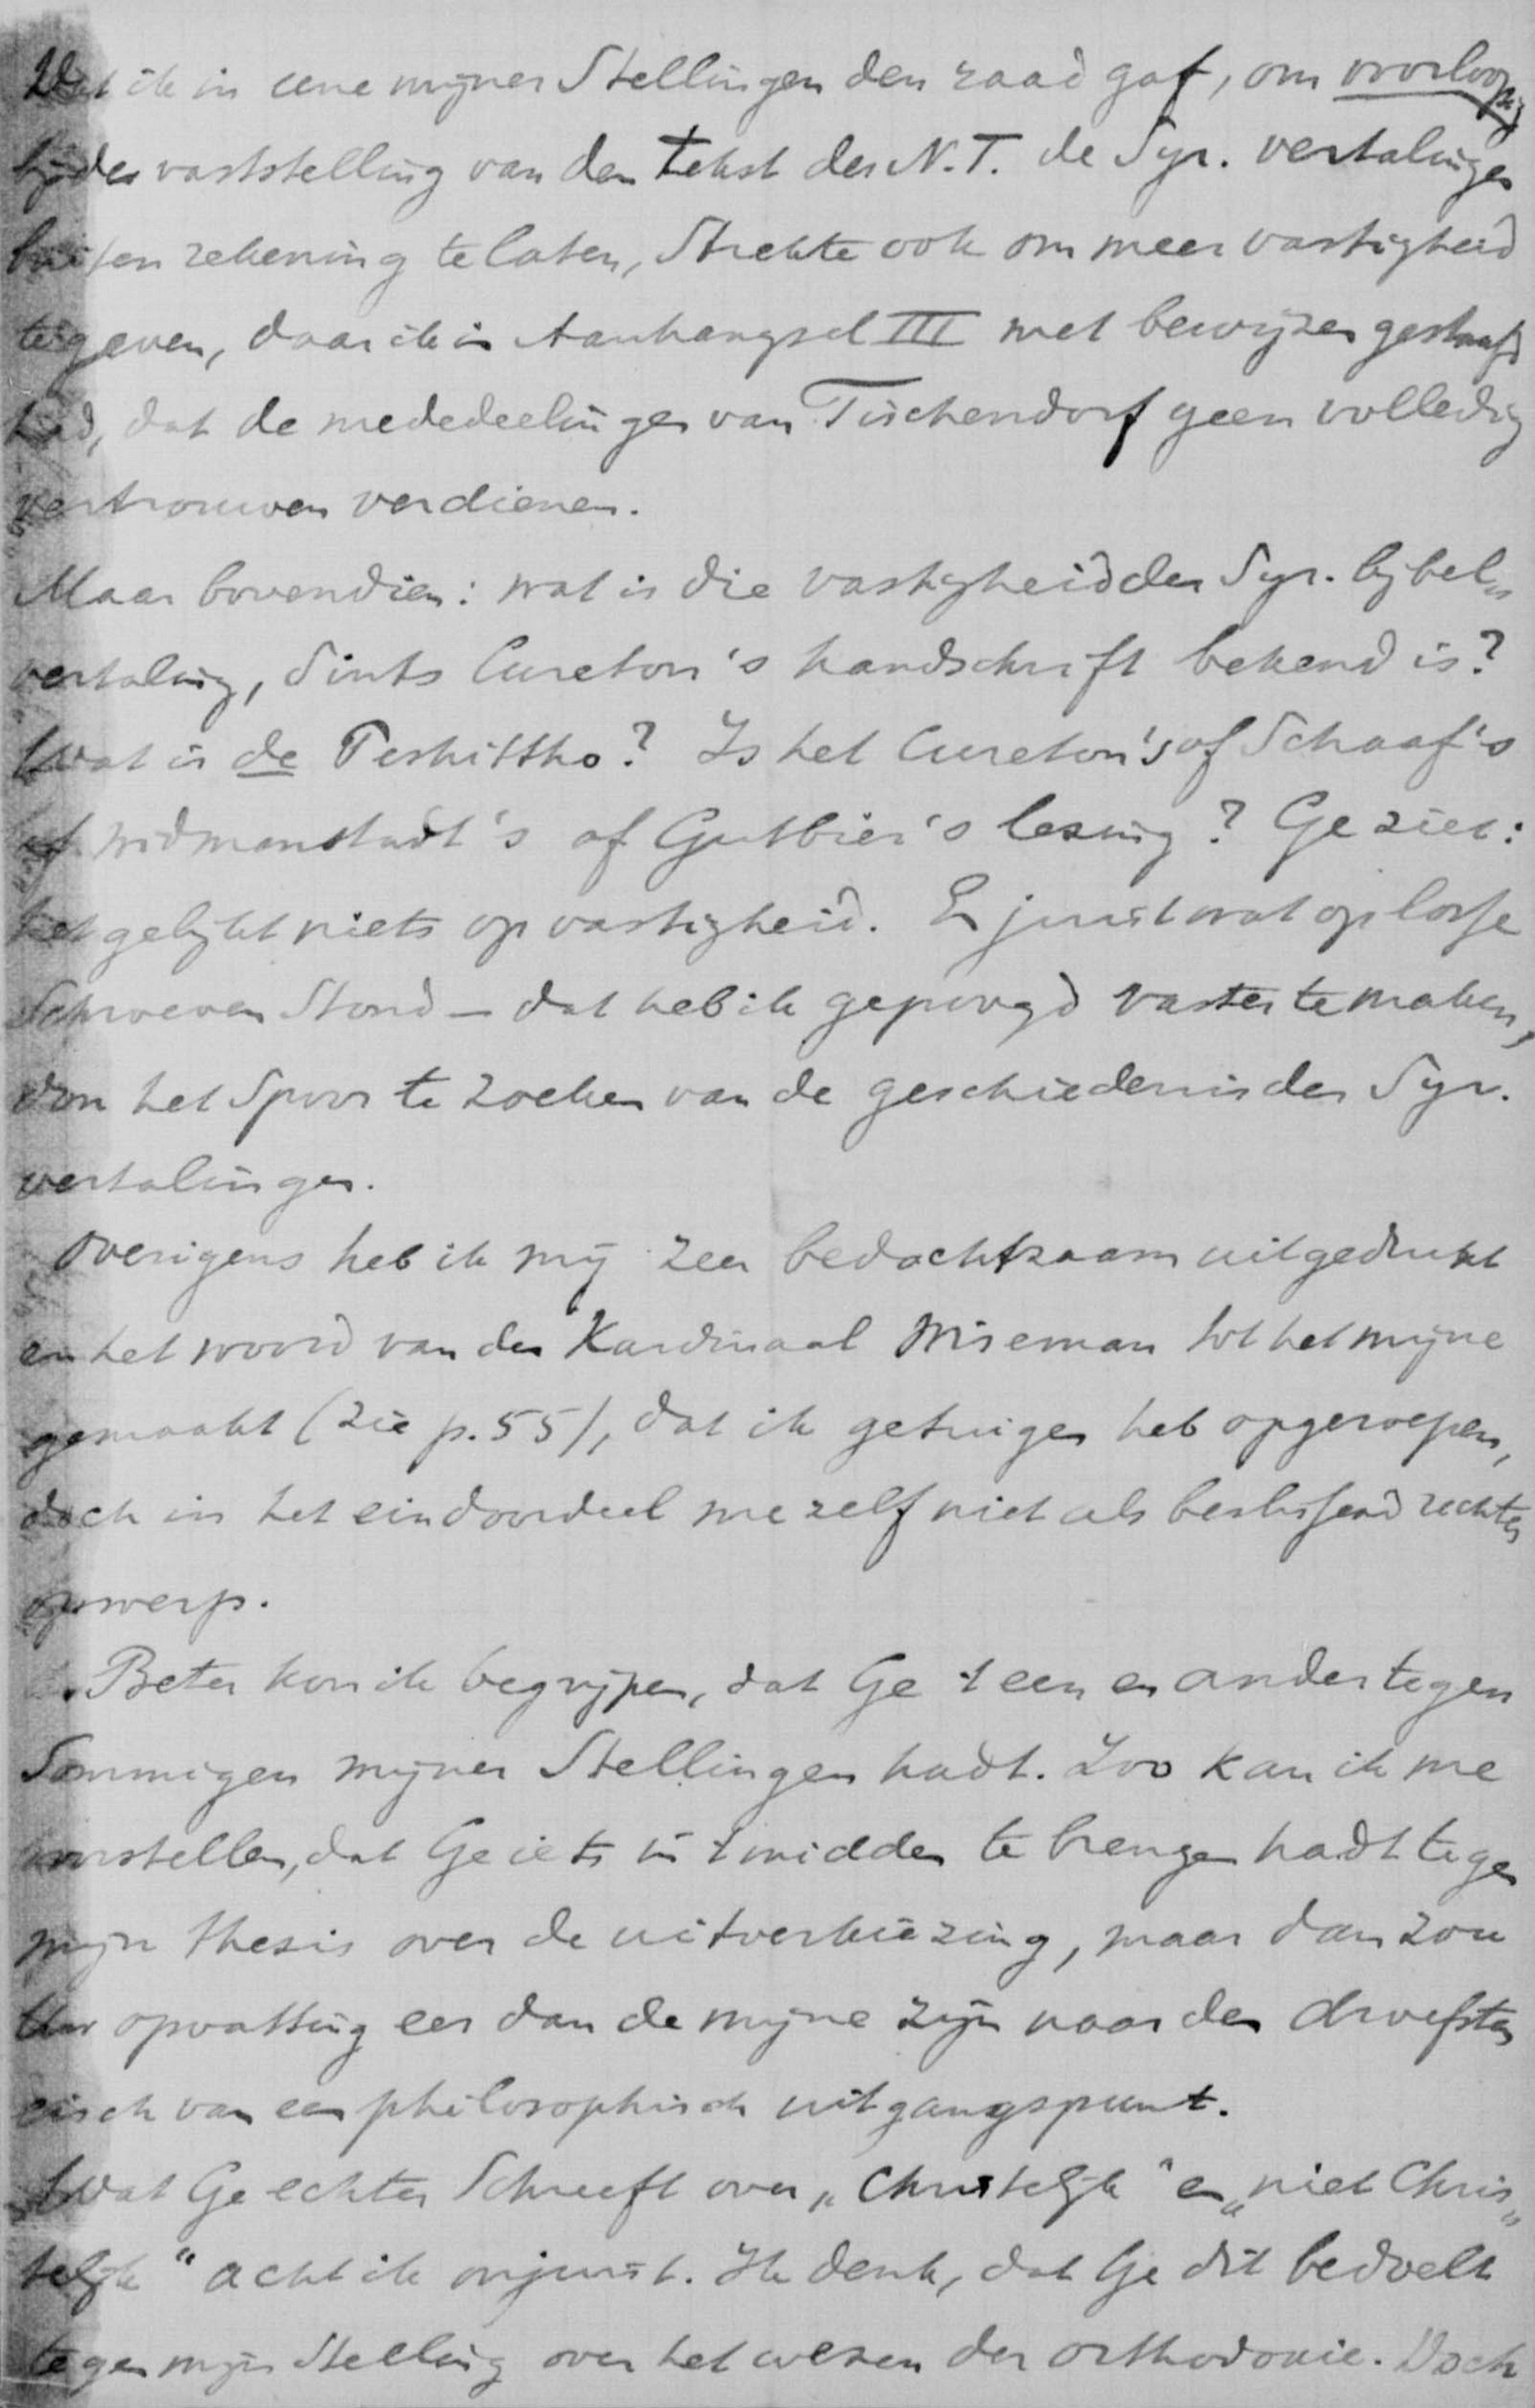 Dat ik in eene mijner Stellingen den raad gaf, om voorloopig
bij de vaststelling van den tekst des N.T. de Syr. vertalingen
buiten rekening te laten, strekte ook om meer vastigheid
te geven, daar ik in Aanhangsel III met bewijzen gestaafd
had, dat de mededeelingen van Tischendorf geen volledig
vertrouwen verdienen.
Maar bovendien: wat is die vastigheid der Syr. bijbel„
vertaling, sints Cureton's handschrift bekend is?
Wat is de Peshittho? Is het Cureton's of Schaaf's
of Widmanstadt's of Gutbier's lezing? Ge ziet:
het gelijkt niets op vastigheid. En juist wat op losse
Schroeven stond — dat heb ik gepoogd vaster te maken,
door het spoor te zoeken van de geschiedenis der Syr.
vertalingen.
Overigens heb ik mij zeer bedachtzaam uitgedrukt
en het woord van den Kardinaal Wiseman tot het mijne
gemaakt (zie p. 55), dat ik getuigen heb opgeroepen,
doch in het eindoordeel me zelf niet als beslissend rechter
opwerp.
Beter kon ik begrijpen, dat Ge 't een en ander tegen
Sommigen mijner Stellingen hadt. Zoo kan ik me
voorstellen, dat Ge iets in 't midden te brengen hadt tegen
mijn thesis over de uitverkiezing, maar dan zou
Uw opvatting eer dan de mijne zijn naar den droefsten
eisch van een philosophisch uitgangspunt.
Wat Ge echter Schreeft over „Christelijk" en „niet Chris„
telijk" acht ik onjuist. Ik denk, dat Ge dit bedoelt
tegen mijn Stelling over het wezen der orthodoxie. Doch